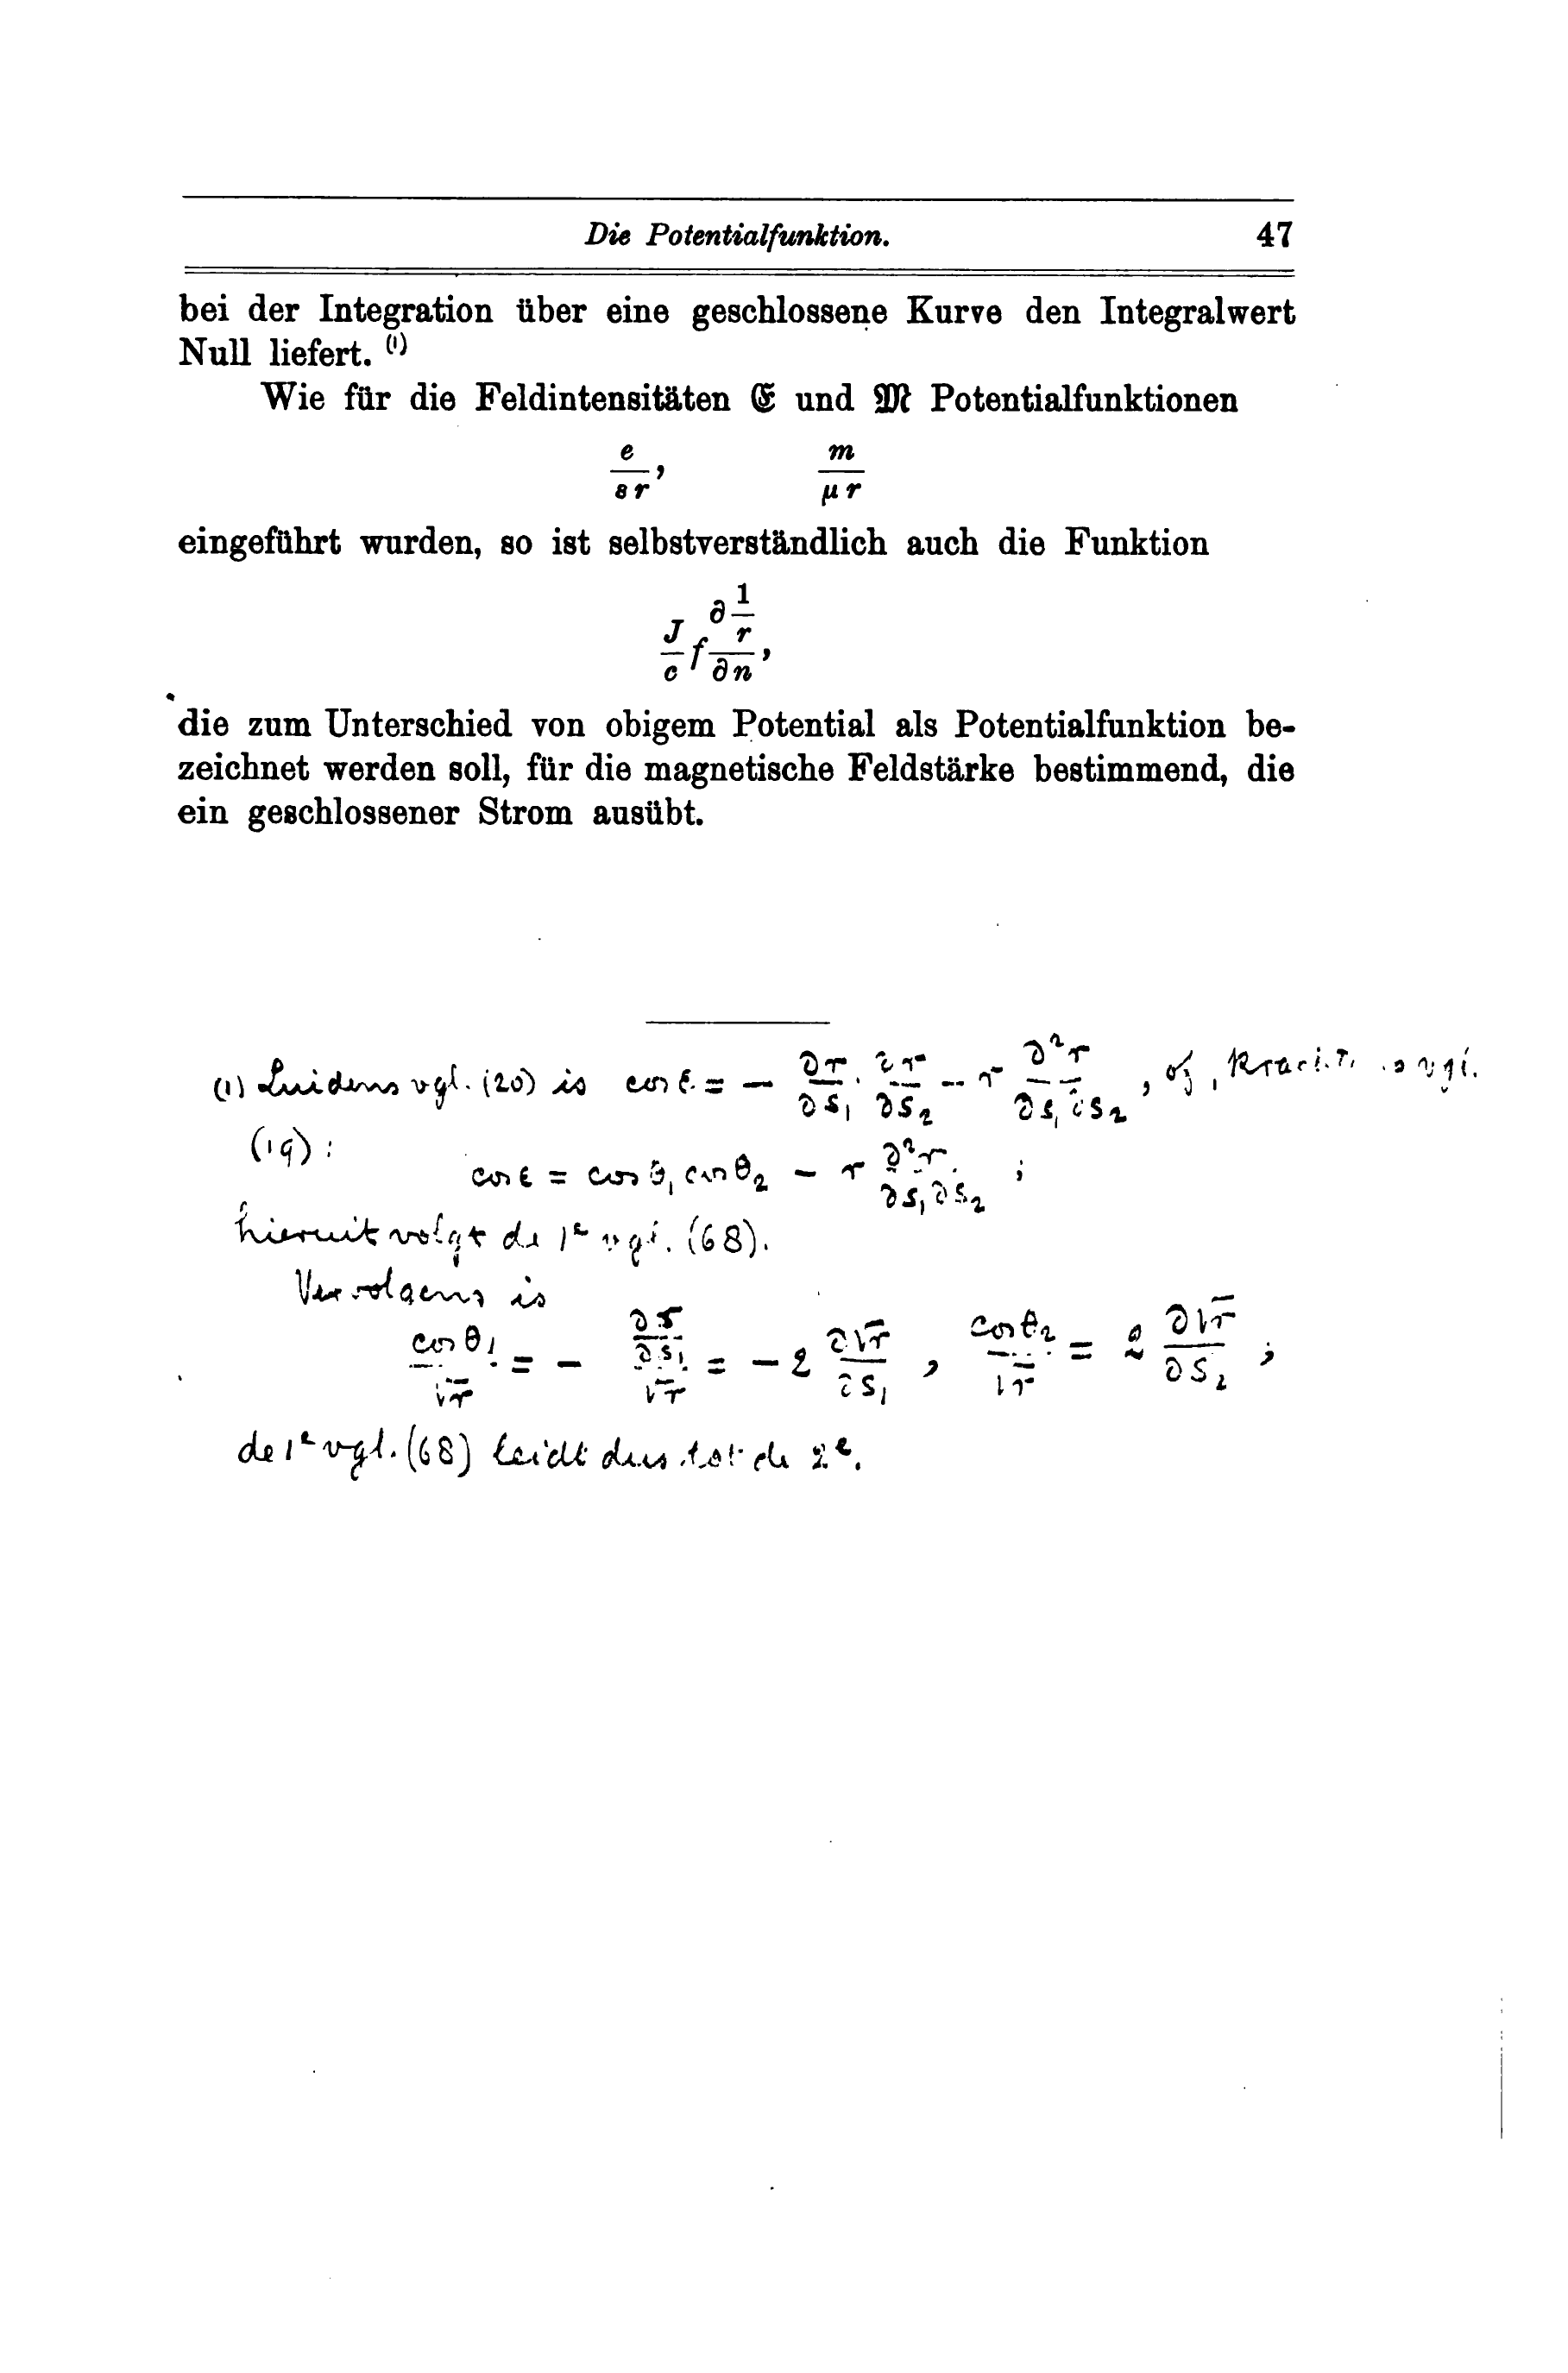 Die Potentialfunktion. 47
bei der Integration über eine geschlossene Kurve den Integralwert
Null liefert. (1)
Wie für die Feldintensitäten 𝔈 und 𝔐 Potentialfunktionen
e/εr, m/μr
eingeführt wurden, so ist selbstverständlich auch die Funktion
J/c f ∂(1/r)/∂n,
die zum Unterschied von obigem Potential als Potentialfunktion be-
zeichnet werden soll, für die magnetische Feldstärke bestimmend, die
ein geschlossener Strom ausübt.
(1) Luidens vgl. (20) is cos ε = − ∂r/∂s₁ · ∂r/∂s₂ − r ∂²r/∂s₁∂s₂, of, vgl.
(19):
cos ε = cos θ₁ cos θ₂ − r ∂²r/∂s₁∂s₂ ;
hieruit volgt de 1e vgl. (68).
Vervolgens is
cos θ₁/√r = − (∂r/∂s₁)/√r = − 2 ∂√r/∂s₁ , cos θ₂/√r = 2 ∂√r/∂s₂ ;
de 1e vgl. (68) leidt dus tot de 2e.